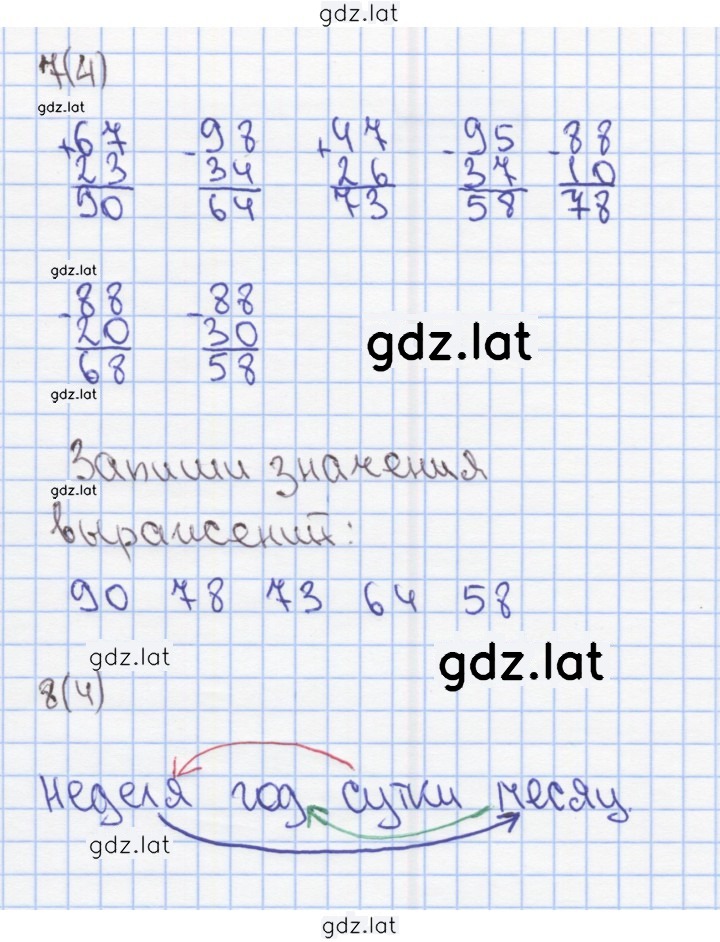 gdz.lat
7(4)
gdz.lat
+67 -98 +47 -95 -88
23 34 26 37 10
90 64 73 58 78
gdz.lat
-88 -88
20 30
gdz.lat
68 58
gdz.lat
Запиши значения
gdz.lat
выражений:
90 78 73 64 58
gdz.lat gdz.lat
8(4)
неделя год сутки месяц.
gdz.lat
gdz.lat